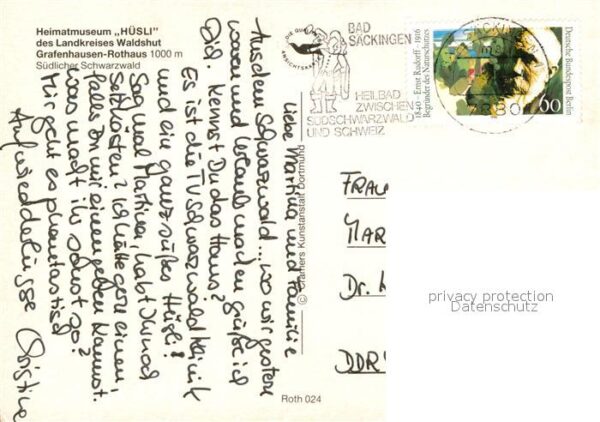 Heimatmuseum „HÜSLI"
des Landkreises Waldshut
Grafenhausen-Rothaus 1000 m
Südlicher Schwarzwald
BAD
SÄCKINGEN
HEILBAD
ZWISCHEN
SÜDSCHWARZWALD
UND SCHWEIZ
1840 - Ernst Rudorff - 1916
Begründer des Naturschutzes
Deutsche Bundespost Berlin
60
Liebe Martina und Familie
Aus dem Schwarzwald... wo wir gestern
waren und Urlaub machen grüße ich
Dich. Kennst Du das Haus?
Es ist die TV Schwarzwaldklinik
und ein ganz süßes Hüsli!
Sag mal Martina, habt Ihr noch
Setzkästen? Ich hätte gern einen,
falls Du mir einen geben kannst.
Was macht ihr sonst so?
Mir geht es phantastisch
Auf wiedersehen Christine
© Cramers Kunstanstalt Dortmund
Roth 024
FRAU
MAR
Dr.
DDR
privacy protection
Datenschutz